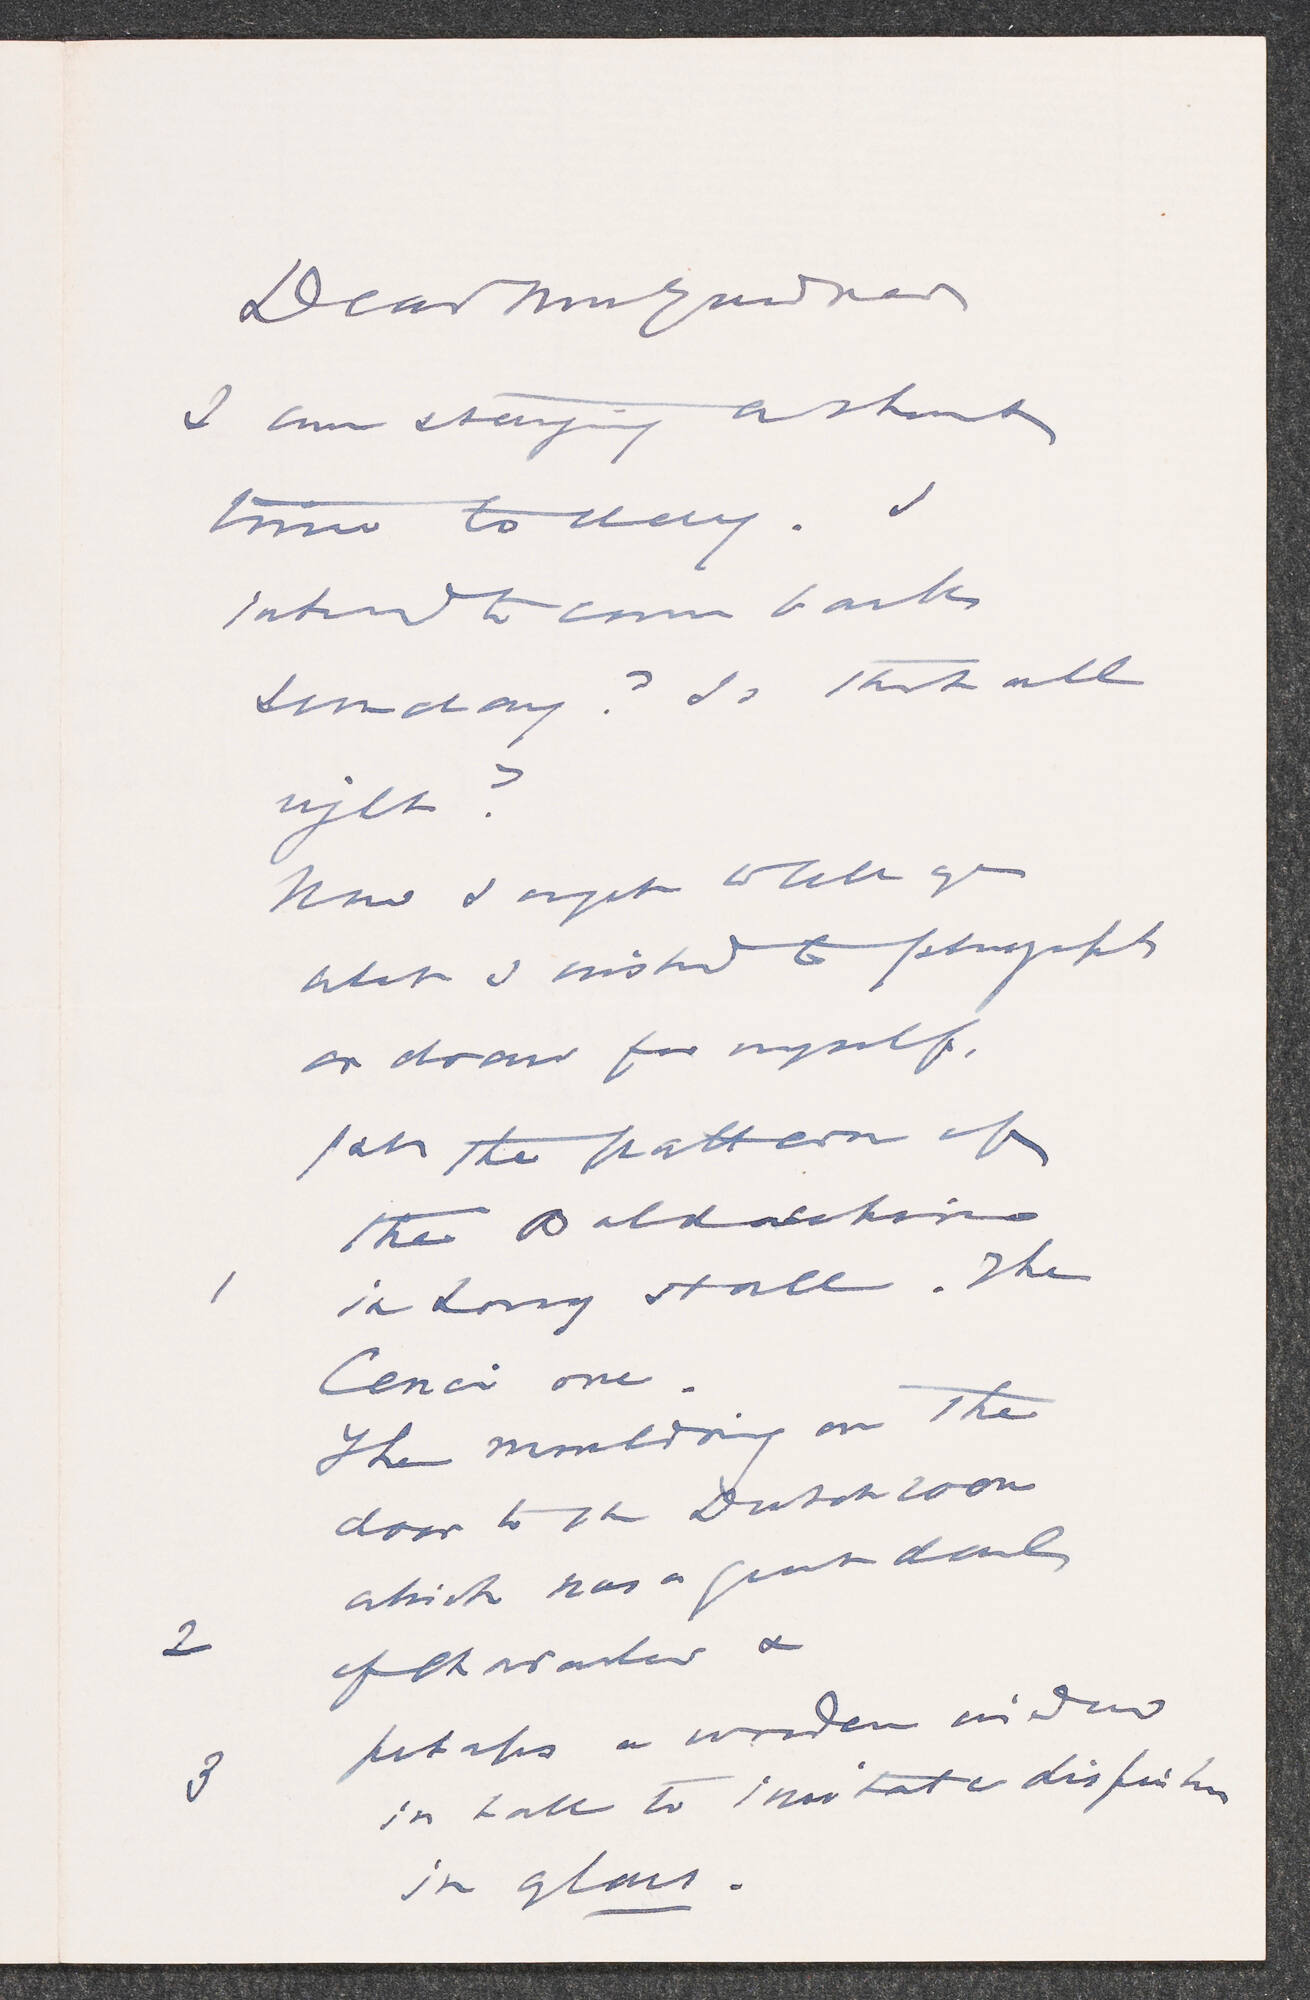 Dear Mrs Gardner
I am staying a short
time to day. I
intend to come back
Sunday? Is that all
right?
Now I might tell you
what I wished to photograph
or draw for myself.
Just the pattern of
the Baldachino
1 in Long Hall. The
Cenci one.
The moulding on the
door to the Dutch room
which has a great deal
2 of character &
3 perhaps a wooden window
in hall to imitate
in glass.